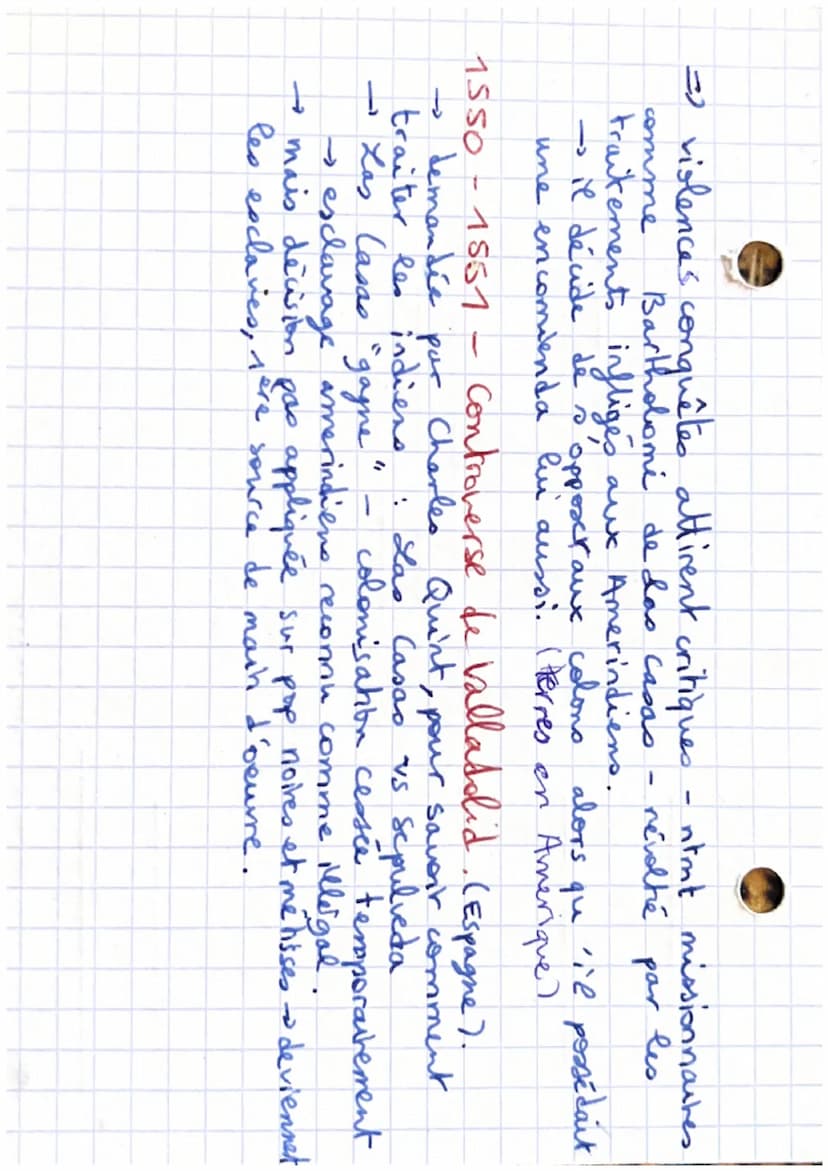 => violences conquêtes attirent critiques - ntmt missionnaires
comme Bartholomé de Las Casas - révolté par les
traitements infligés aux Amérindiens.
→ il décide de s'opposer aux colons alors qu'il possédait
une encomienda lui aussi. (terres en Amérique)
1550 - 1551 - Controverse de Valladolid. (Espagne).
→ demandée par Charles Quint, pour savoir comment
traiter les indiens : Las Casas vs Sepulveda
→ Las Casas "gagne" - colonisation cessée temporairement
→ esclavage amérindiens reconnu comme illégal.
→ mais décision pas appliquée sur pop noires et métisses → deviennent
les esclaves, 1ère source de main d'oeuvre.